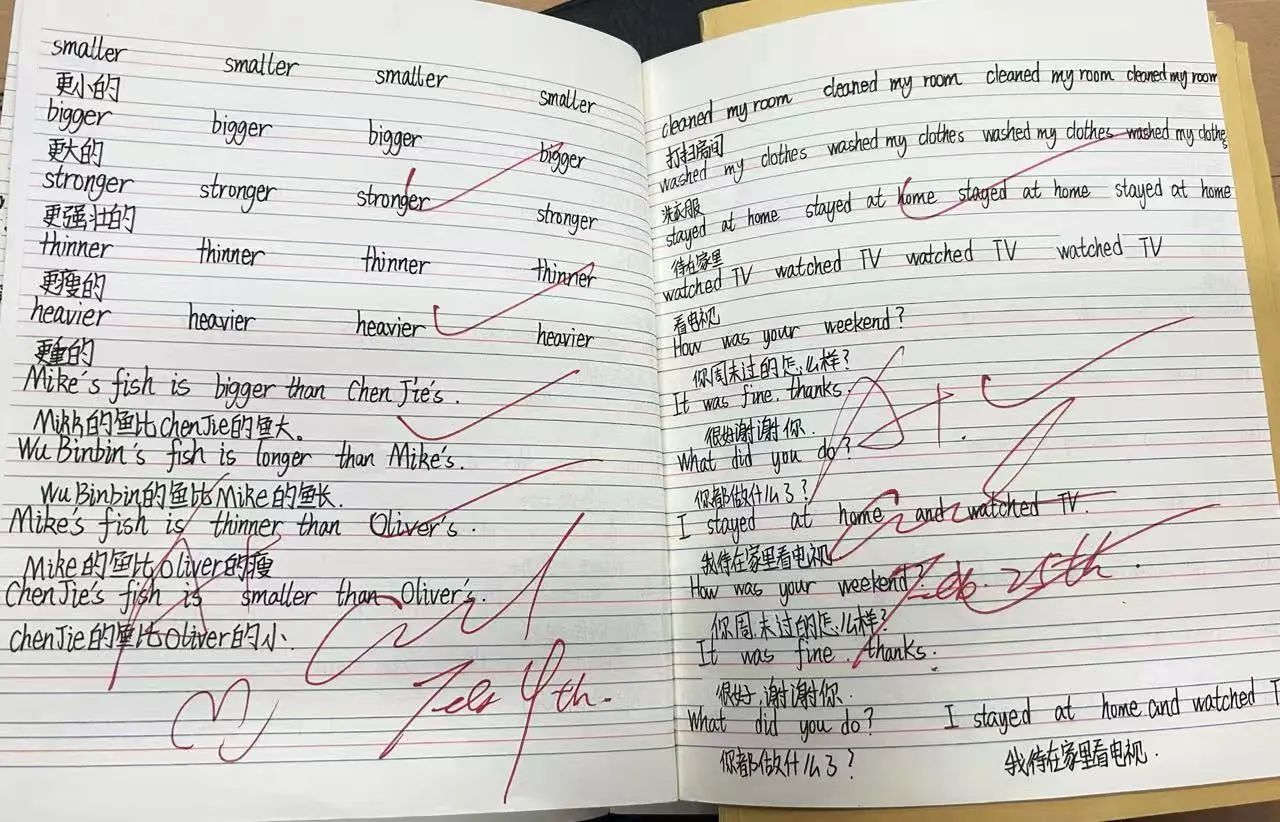 smaller smaller smaller smaller
更小的
bigger bigger bigger bigger
更大的
stronger stronger stronger stronger
更强壮的
thinner thinner thinner thinner
更瘦的
heavier heavier heavier heavier
更重的
Mike's fish is bigger than Chen Jie's.
的鱼比ChenJie的鱼大。
Wu Binbin's fish is longer than Mike's.
Wu Binbin的鱼比Mike的鱼长.
Mike's fish is thinner than Oliver's.
Mike的鱼比Oliver的瘦
ChenJie's fish is smaller than Oliver's.
chenJie的鱼比Oliver的小.
4th.
cleaned my room cleaned my room cleaned my room cleaned my room
打扫房间
washed my clothes washed my clothes washed my clothes washed my clothes
洗衣服
stayed at home stayed at home stayed at home stayed at home
待在家里
watched TV watched TV watched TV watched TV
看电视
How was your weekend?
你周末过的怎么样?
It was fine. thanks.
很好谢谢你.
A+
What did you do?
你都做什么了?
I stayed at home and watched TV.
我待在家里看电视
Feb. 25th.
How was your weekend?
你周末过的怎么样?
It was fine. thanks.
很好,谢谢你.
What did you do? I stayed at home and watched T
你都做什么了? 我待在家里看电视.